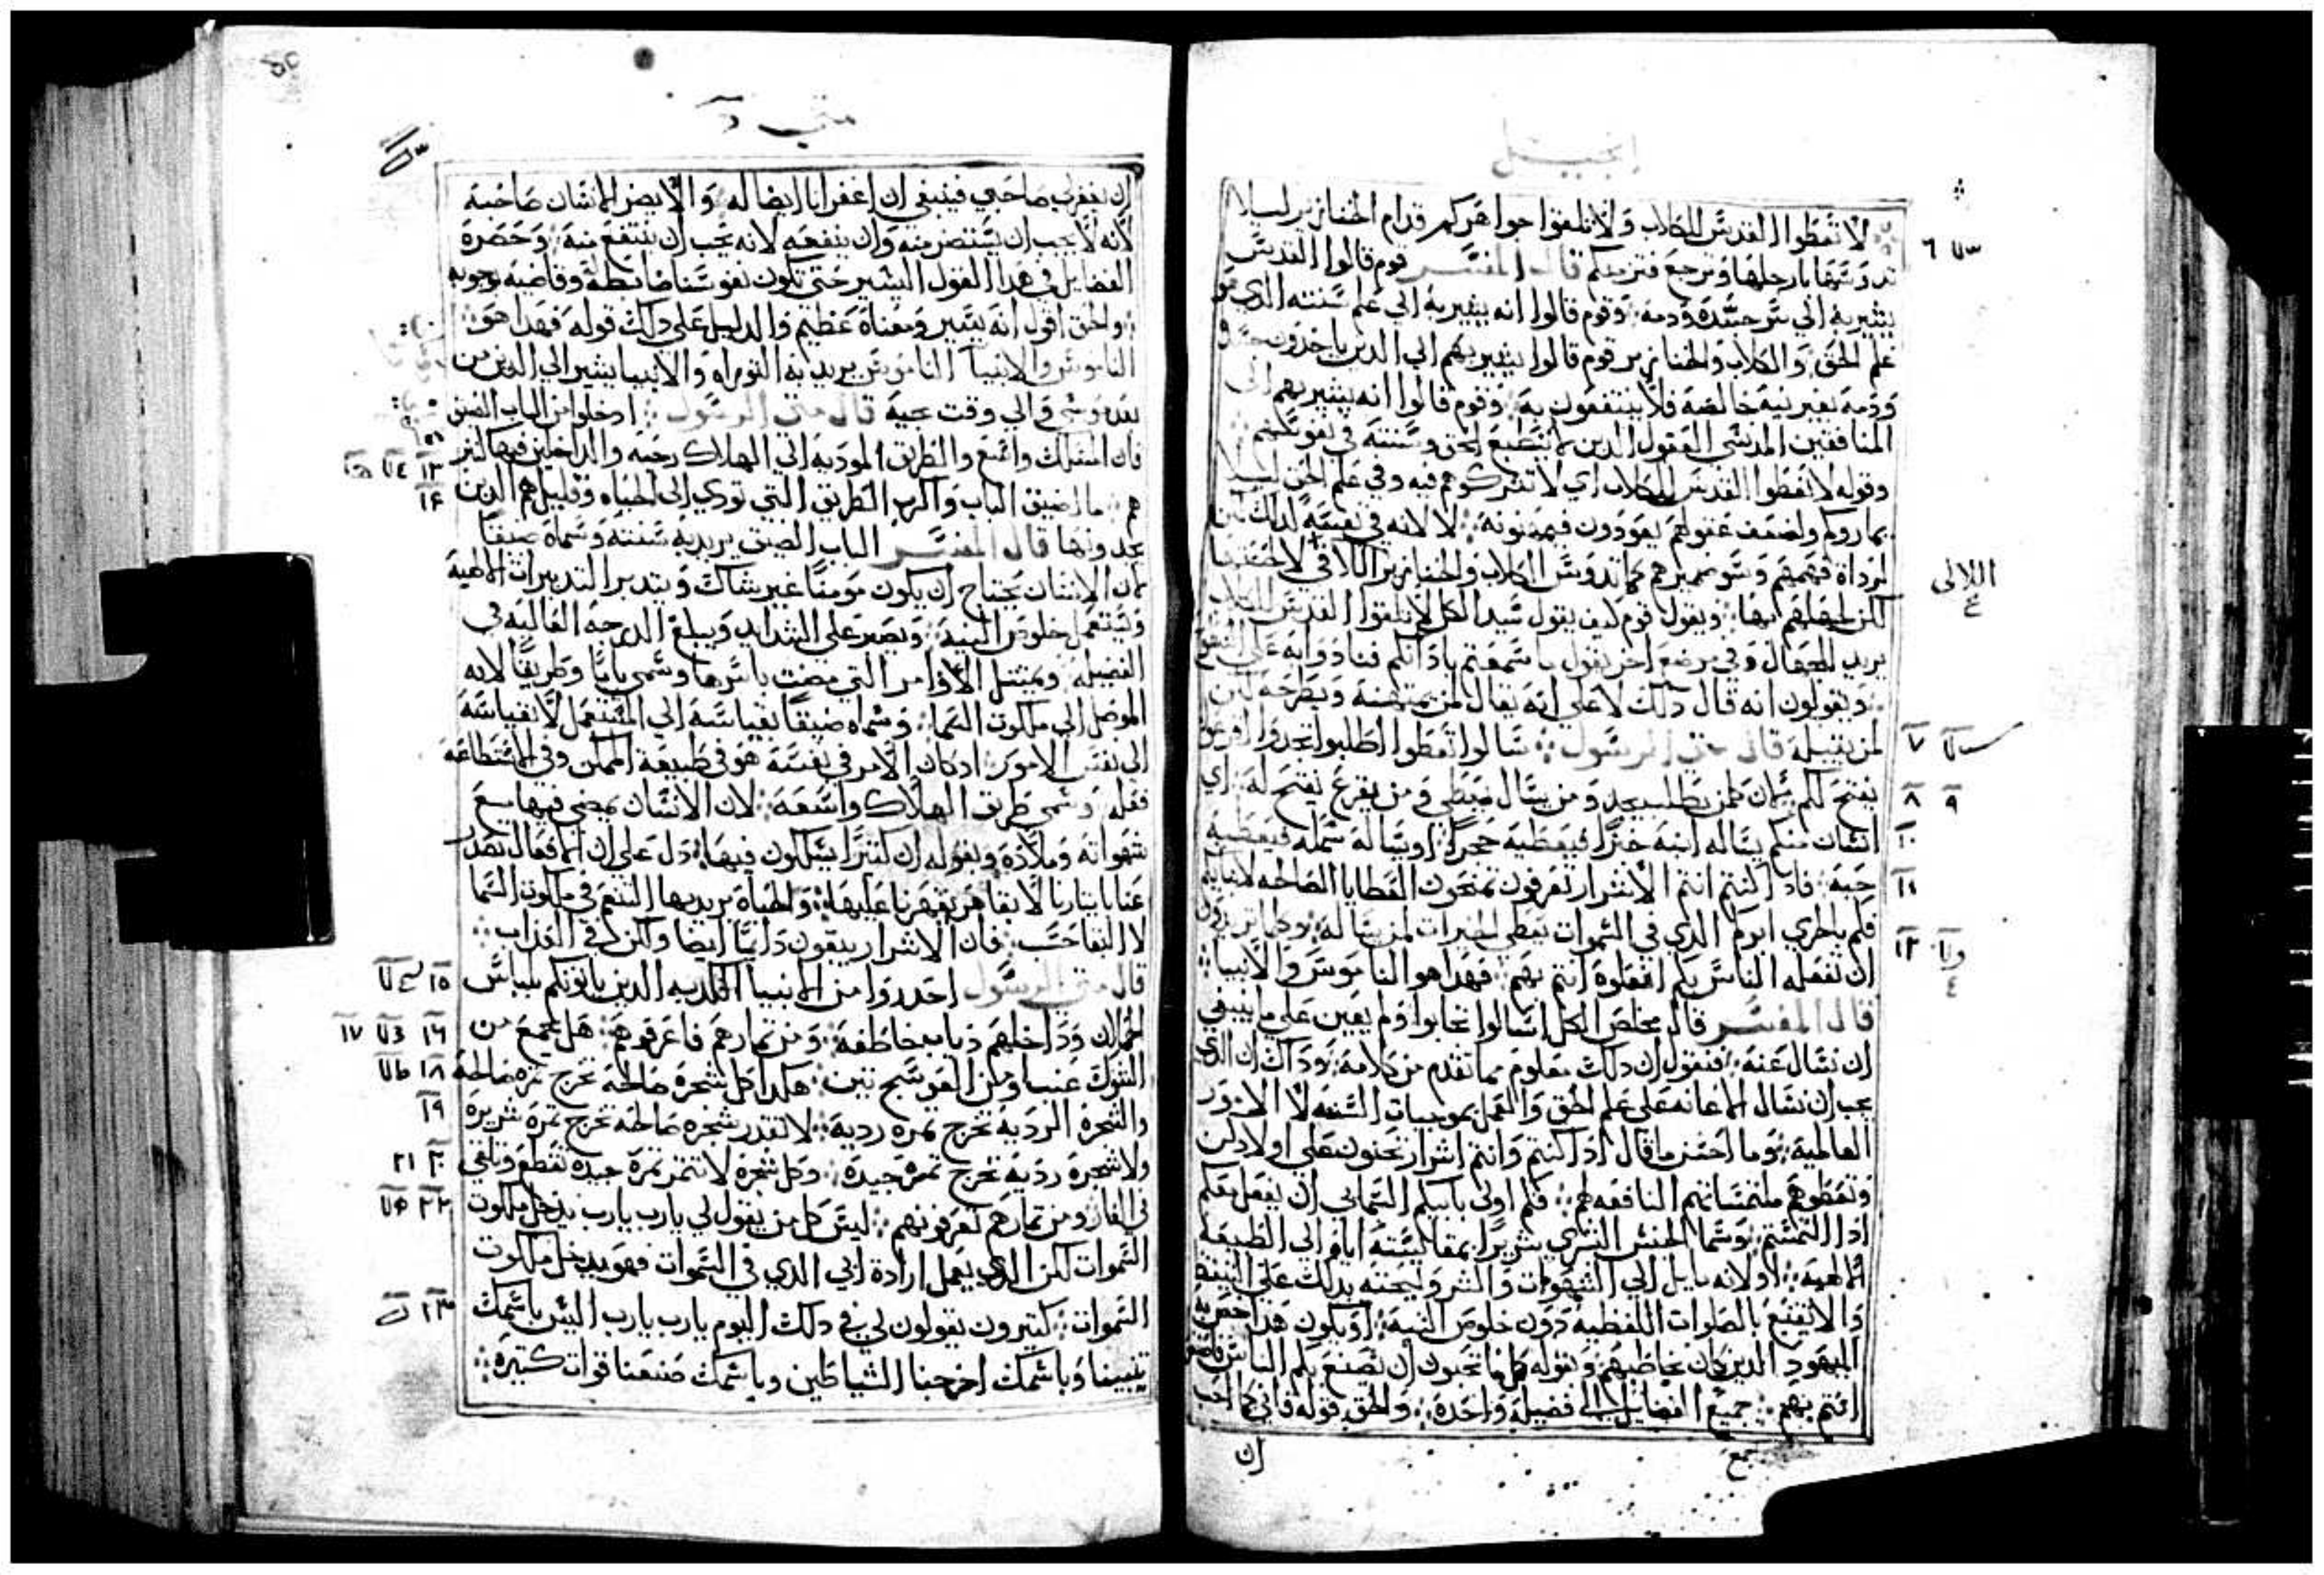 إنجيل
لا تعطوا القدس للكلاب ولا تلقوا جواهركم قدام الخنازير ليلا
تدوسها بارجلها وترجع فتزمكم قال المفسر قوم قالوا القدس
يشير به الي سر جسده ودمه وقوم قالوا انه يشير به الي علم سنته الذي هو
علم الحق والكلاب والخنازير قوم قالوا يشير بهم الي الذين ياخذون جسده
ودمه بغير نية خالصة فلا ينتفعون به وقوم قالوا انه يشير بهم الي
المنافقين المدنسي العقول الذين لا ينطبع الحق وسننه في نفوسهم
وقوله لا تعطوا القدس للكلاب اي لا تشركوهم فيه وفي علم الحق ليلا
يماروكم ولضعف عقولهم يعودون فيهينونه لا لانه في نفسه كذلك لكن
لرداة فهمهم وسو تمييزهم كما تدوس الكلاب والخنازير اللالي لا لخستها
لكن لجهلهم بها ويقول قوم كيف يقول سيد الكل لا تلقوا القدس للكلاب
يريد الجهال وفي موضع اخر يقول ما سمعتم باذانكم فنادوا به على السطوح
ويقولون انه قال ذلك لا على انه يقال لمن يمتهنه ويطرحه لكن
لمن يقبله قال متى الرسول سالوا تعطوا اطلبوا تجدوا اقرعوا
يفتح لكم لان كل من يطلب يجد ومن يسال يعطي ومن يقرع يفتح له اي
انسان منكم يساله ابنه خبزا فيعطيه حجرا او يساله سمكة فيعطيه
حية فاذا كنتم انتم الاشرار تعرفون تمنحون العطايا الصالحة لابنايكم
فكم بالحري ابوكم الذي في السموات يعطي الخيرات لمن يساله وكلما تريدون
ان تفعله الناس بكم افعلوه انتم بهم فهذا هو الناموس والانبيا
قال المفسر قال مخلص الكل اسالوا تجابوا ولم يعين على ما ينبغي
ان نسال عنه فنقول ان ذلك معلوم مما تقدم من كلامه وذاك ان الذي
يجب ان نسال الاعانة على علم الحق والعمل بموجبات السنة لا الامور
العالمية وما احسن ما قال اذا كنتم وانتم اشرار تحنون على اولادكن
وتعطوهم ملتمساتهم النافعة لهم فكم اولى بابيكم السماني ان يفعل معكم
اذا التمستم وسما الجنس البشري شريرا بمقايسته اياه الي الطبيعة
الالهية او لانه مايل الي الشهوات والشر وليحثه بذلك على التيقظ
والا يقتنع بالصلوات اللفظية دون خلوص النية او يكون هذا
اليهود الذين كان يخاطبهم وبقوله كل ما تحبون ان تصنع بكم الناس
انتم بهم جميع الفضايل الي فضيلة واحدة والحق قوله فاني كما احب
ان
جمع
اللالي
٦
٧
٨
٩
١٠
١١
١٢
متى
ان يغفر لي صاحبي فينبغي ان اغفر انا ايضا له والا يضر الانسان صاحبه
لانه لا يجب ان يستضر منه وان ينفعه لانه يحب ان ينتفع منه وحصره
الفضايل في هذا القول اليسير حتى تكون نفوسنا ضابطة وقاضية بوجوبه
والحق اقول انه يسير ومعناه عظيم والدليل على ذلك قوله فهذا هو
الناموس والانبيا الناموس يريد به التوراه والانبيا يشير الي الذين من
بعد موسى والي وقت مجيه قال متى الرسول ادخلوا من الباب الضيق
فان المسلك واسع والطريق المودية الي الهلاك رحبة والداخلين فيها كثير
هم ما اضيق الباب واكرب الطريق التي تودي الى الحياه وقليل هم الذين
يجدونها قال المفسر الباب الضيق يريد به سنته وسماه ضيقا
لان الانسان يحتاج ان يكون مومنا غير شاك ويتدبر التدبيرات الالهية
ويستعمل خلوص النية ويصبر على الشدايد ويبلغ الدرجة العالية في
الفضيلة ويمتثل الاوامر التي مضت باسرها وسمي بابا وطريقا لانه
الموصل الي ملكوت السما وسماه ضيقا بقياسه الي المستعمل لا بقياسه
الي نفس الامور اذ كان الامر في نفسه هو في طبيعة الممكن وفي الاستطاعة
فعله وسمي طريق الهلاك واسعة لان الانسان يمضي فيها مع
شهواته وملاذه وبقوله ان كثيرا يسلكون فيها دل على ان الافعال تصدر
عنا بايثارنا لا بقاهر يقهرنا عليها والحياة يريد بها التنعم في ملكوت السما
لا البقا حسب فان الاشرار يبقون دايما ايضا ولكن في العذاب
قال متى الرسول احذروا من الانبيا الكذبه الذين ياتونكم بلباس
الحملان وداخلهم ذياب خاطفة ومن ثمارهم فاعرفوهم هل يجمع من
الشوك عنبا او من العوسج تين هكذا كل شجرة صالحة تخرج ثمره صالحة
والشجرة الردية تخرج ثمرة ردية لا تقدر شجره صالحة تخرج ثمرة شريرة
ولا شجرة ردية تخرج ثمرة جيدة وكل شجرة لا تثمر ثمرة جيدة تقطع وتلقي
في النار ومن ثمارهم تعرفونهم ليس كل من يقول لي يارب يارب يدخل ملكوت
السموات لكن الذي يعمل ارادة ابي الذي في السموات فهو يدخل ملكوت
السموات كثيرون يقولون لي في ذلك اليوم يارب يارب اليس باسمك
تنبينا وباسمك اخرجنا الشياطين وباسمك صنعنا قوات كثيرة
١٣
١٤
١٥
١٦ ١٧
١٨
١٩
٢٠ ٢١
٢٢
٢٣